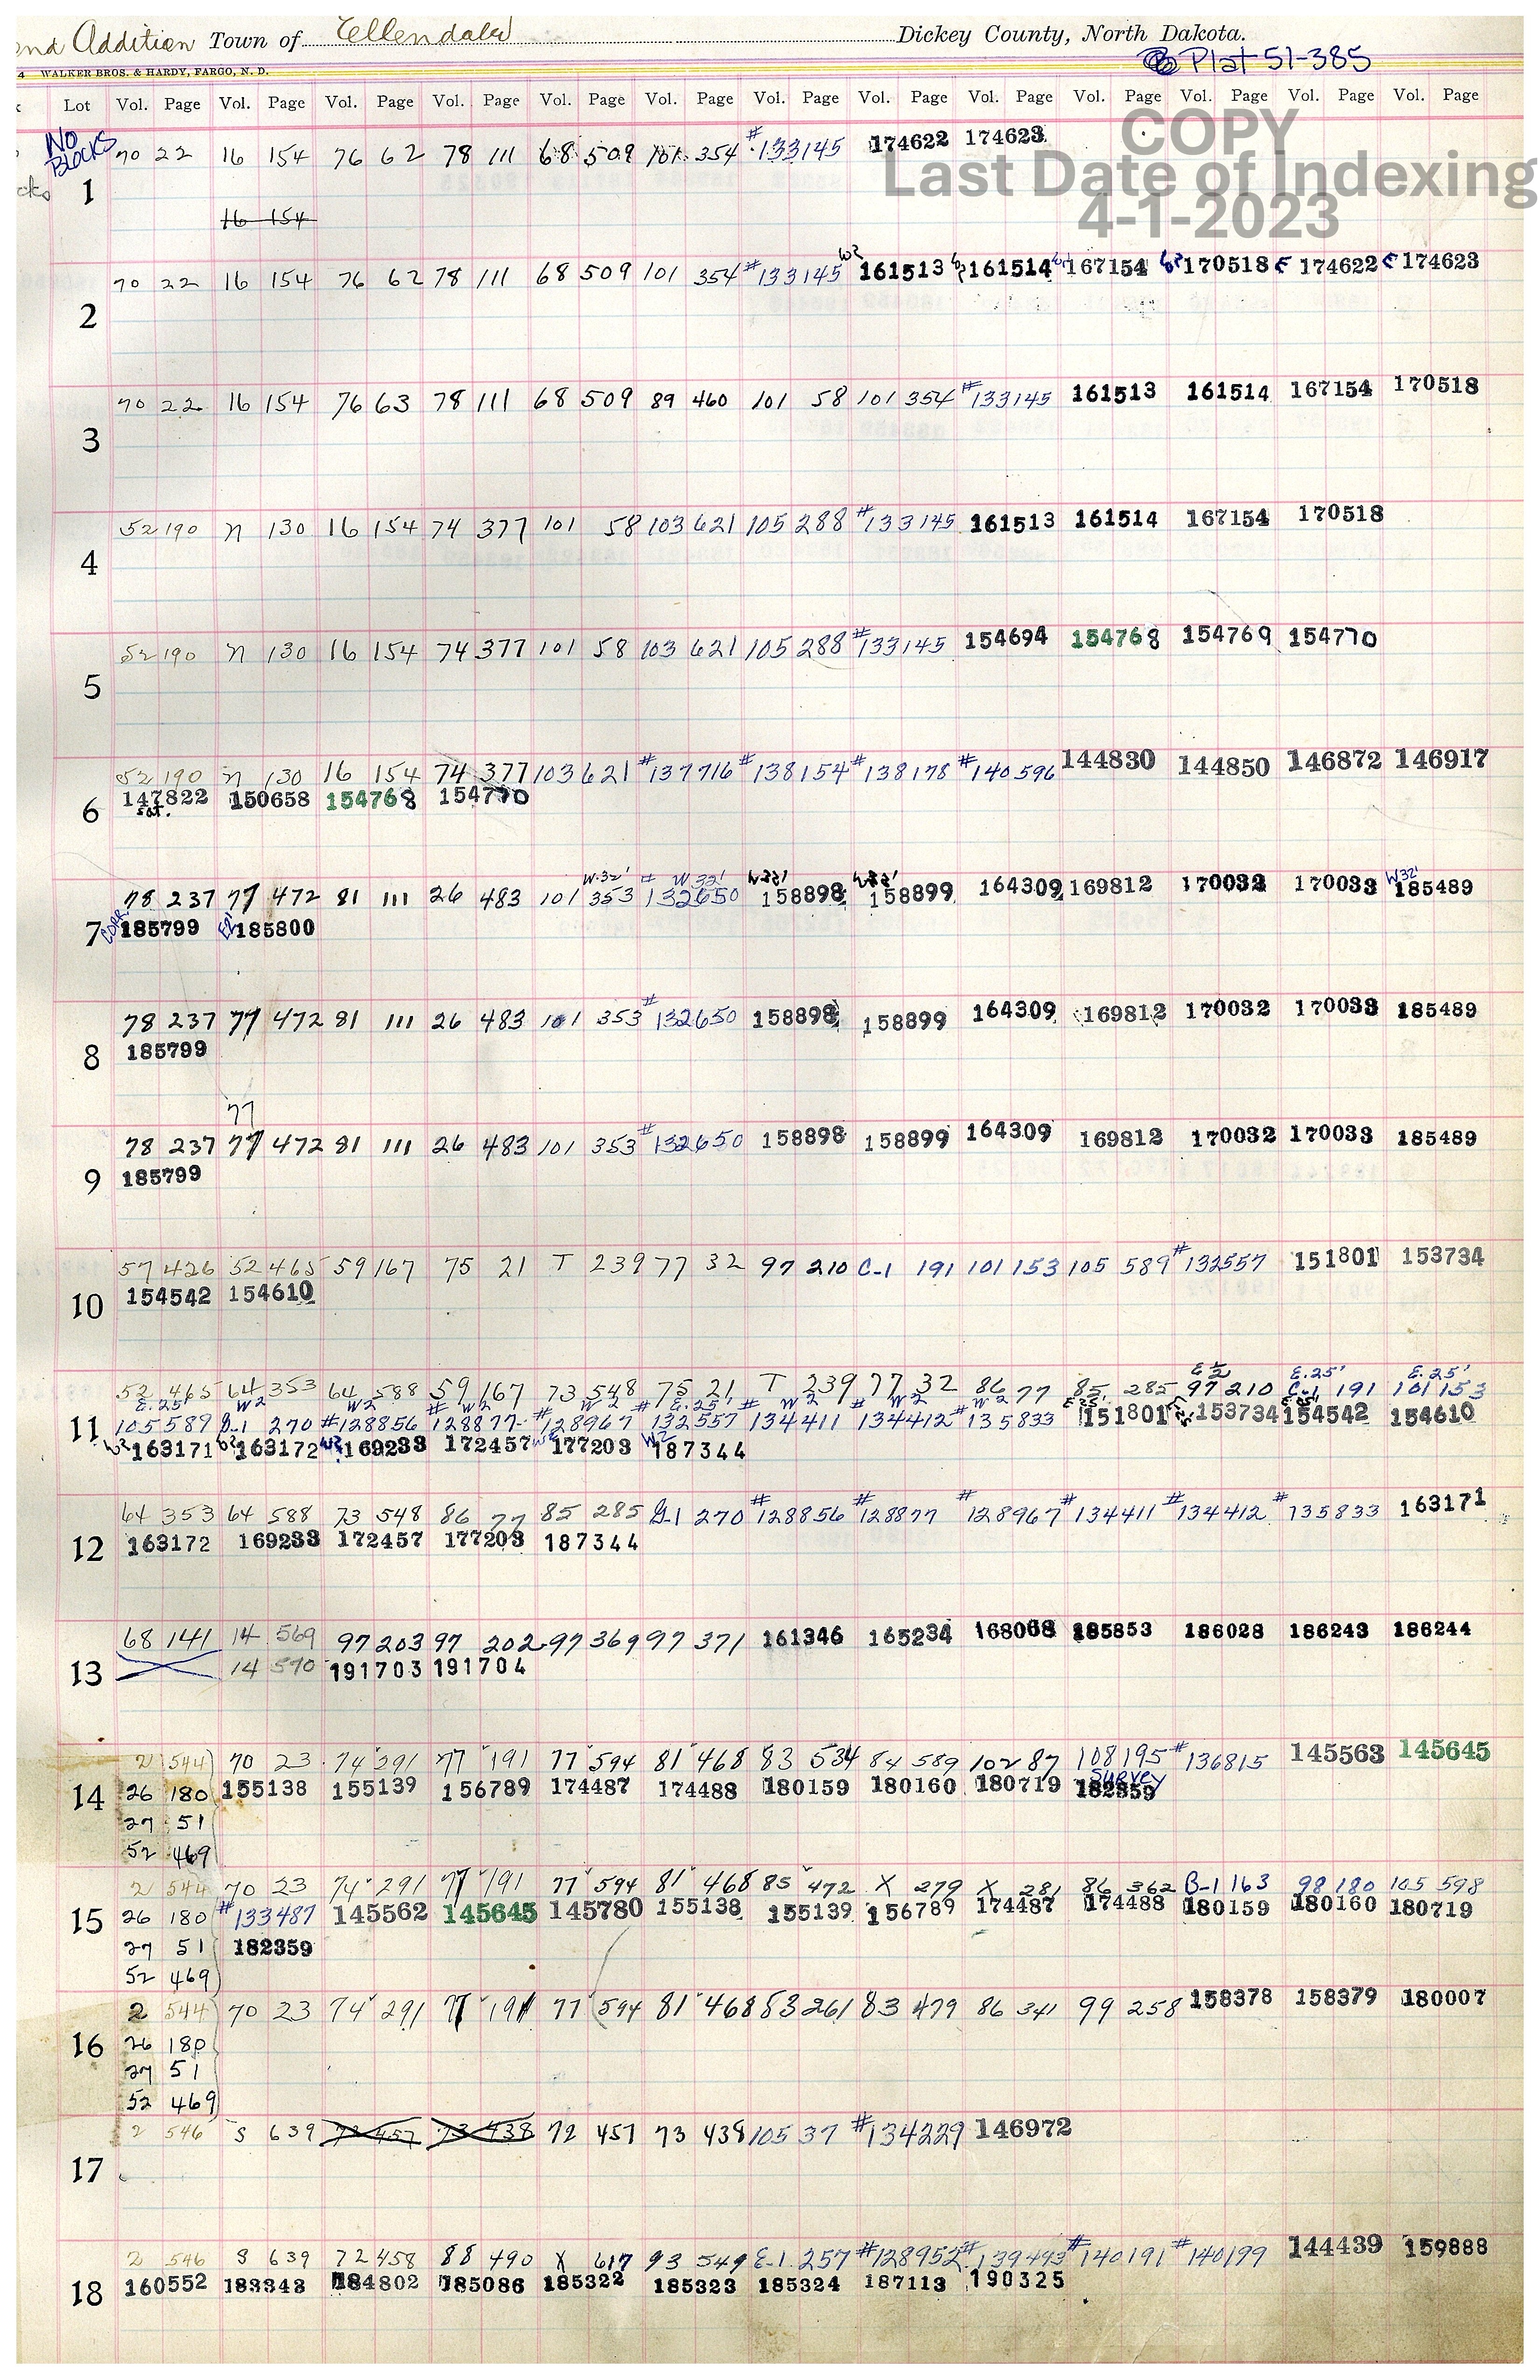 nd Addition Town of Ellendale Dickey County, North Dakota.
4 WALKER BROS. & HARDY, FARGO, N. D. Plat 51-385
Lot Vol. Page Vol. Page Vol. Page Vol. Page Vol. Page Vol. Page Vol. Page Vol. Page Vol. Page Vol. Page Vol. Page Vol. Page Vol. Page
COPY
Last Date of Indexing
4-1-2023
NO BLOCKS
70 22 16 154 76 62 78 111 68 509 101 354 #133145 174622 174623
cks 1
16 154
70 22 16 154 76 62 78 111 68 509 101 354 #133145 W2 161513 161514 167154 170518 E 174622 E 174623
2
70 22 16 154 76 63 78 111 68 509 89 460 101 58 101 354 #133145 161513 161514 167154 170518
3
52 190 n 130 16 154 74 377 101 58 103 621 105 288 #133145 161513 161514 167154 170518
4
52 190 n 130 16 154 74 377 101 58 103 621 105 288 #133145 154694 154768 154769 154770
5
52 190 n 130 16 154 74 377 103 621 #137716 #138154 #138178 #140596 144830 144850 146872 146917
6 147822 150658 154768 154770
sat.
W.32' # W.32' W32'
78 237 77 472 81 111 26 483 101 353 132650 158898 158899 164309 169812 170032 170033 185489
7 CORR. 185799 185800
78 237 77 472 81 111 26 483 101 353 #132650 158898 158899 164309 169812 170032 170033 185489
8 185799
77
78 237 77 472 81 111 26 483 101 353 #132650 158898 158899 164309 169812 170032 170033 185489
9 185799
57 426 52 465 59 167 75 21 T 239 77 32 97 210 C-1 191 101 153 105 589 #132557 151801 153734
10 154542 154610
E½ E.25' E.25'
52 465 64 353 64 588 59 167 73 548 75 21 T 239 77 32 86 77 85 285 97 210 C-1 191 101 153
E.25' W2 W2 W2 W2 E.25' W2 W2 W2
11 105 589 270 #128856 #128877 #128967 #132557 134411 #134412 #135833 151801 153734 154542 154610
W2 163171 W2 163172 W2 169233 172457 177203 W2 187344
64 353 64 588 73 548 86 77 85 285 270 #128856 #128877 #128967 #134411 #134412 #135833 163171
12 163172 169233 172457 177203 187344
68 141 14 569 97 203 97 202 97 369 97 371 161346 165234 168068 185853 186028 186243 186244
13 14 570 191703 191704
2 544 70 23 74 291 77 191 77 594 81 468 83 534 84 589 102 87 108 195 #136815 145563 145645
Survey
14 26 180 155138 155139 156789 174487 174488 180159 180160 180719 182359
27 51
52 469
2 544 70 23 74 291 77 191 77 594 81 468 85 472 X 279 X 281 86 362 B-1 163 98 180 105 598
15 26 180 #133487 145562 145645 145780 155138 155139 156789 174487 174488 180159 180160 180719
27 51 182359
52 469
2 544 70 23 74 291 77 191 77 594 81 468 83 261 83 479 86 341 99 258 158378 158379 180007
16 26 180
27 51
52 469
2 546 S 639 72 457 73 438 72 457 73 438 105 37 #134229 146972
17
2 546 S 639 72 458 88 490 X 617 93 549 E-1 257 #128952 #139493 #140191 #140199 144439 159888
18 160552 183348 184802 185086 185322 185323 185324 187113 190325